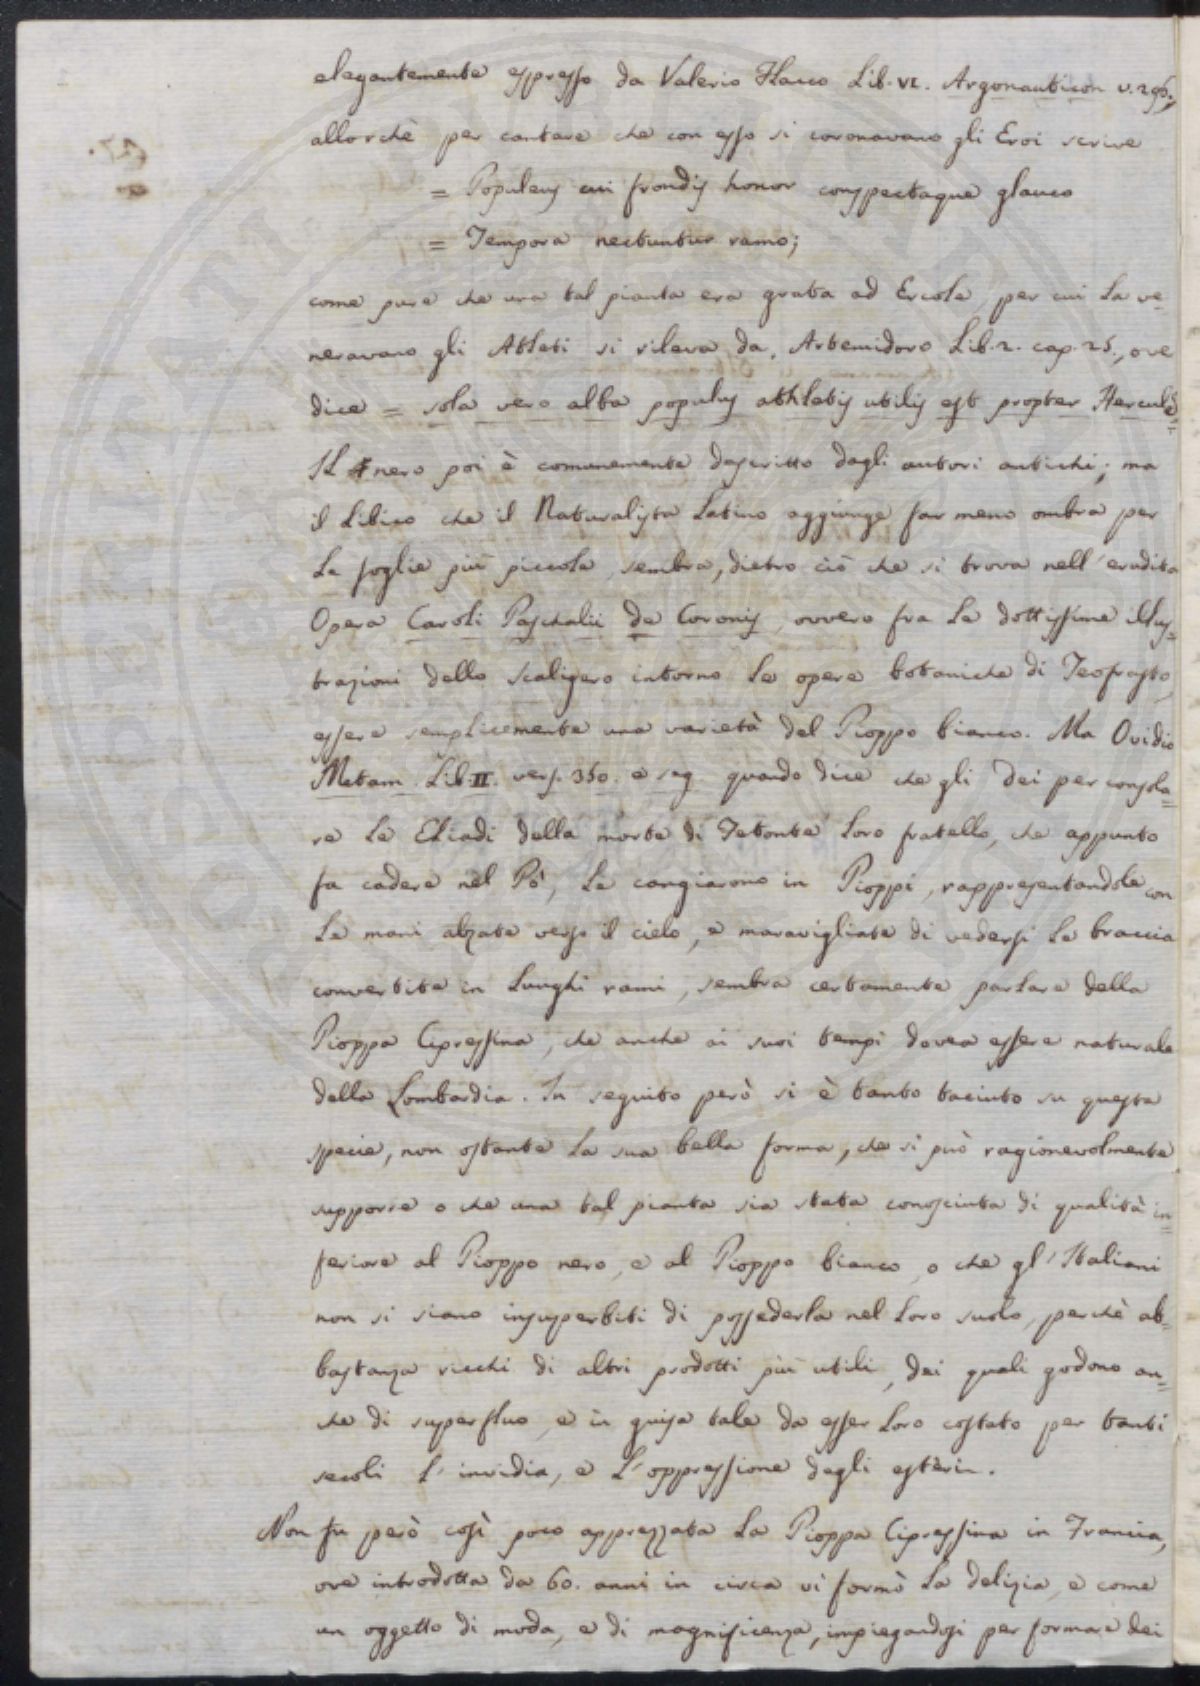 elegantemente espresso da Valerio Flacco Lib. VI. Argonauticon v. 296.,
allorchè per cantare che con esso si coronavano gli Eroi scrive
= Populeus cui frondis honor conspectaque glauco
= Tempora nectuntur ramo;
come pure che una tal pianta era grata ad Ercole, per cui la ve=
neravano gli Atleti si rileva da Artemidoro Lib. 2. cap. 25., ove
dice = sola vero alba populus athletis utilis est propter Herculẽ=
Il nero poi è comunemente descritto dagli autori antichi; ma
il Libico che il Naturalista Latino aggiunge far meno ombra per
le foglie più piccole, sembra, dietro ciò che si trova nell'erudita
Opera Caroli Paschalii de Coronis, ovvero fra le dottissime illus=
trazioni dello Scaligero intorno le opere botaniche di Teofrasto,
essere semplicemente una varietà del Pioppo bianco. Ma Ovidio
Metam. Lib. II. vers. 350. e seg. quando dice che gli Dei per consola=
re le Eliadi della morte di Fetonte loro fratello, che appunto
fa cadere nel Pò, le cangiarono in Pioppi, rappresentandole con
le mani alzate verso il cielo, e maravigliate di vedersi le braccia
convertite in lunghi rami, sembra certamente parlare della
Pioppa Cipressina, che anche ai suoi tempi dovea essere naturale
della Lombardia. In seguito però si è tanto taciuto su questa
specie, non ostante la sua bella forma, che si può ragionevolmente
supporre o che una tal pianta sia stata conosciuta di qualità in=
feriore al Pioppo nero, e al Pioppo bianco, o che gl'Italiani
non si siano insuperbiti di possederla nel loro suolo, perchè ab=
bastanza ricchi di altri prodotti più utili, dei quali godono an=
che di superfluo, e in guisa tale da esser loro costato per tanti
secoli l'invidia, e l'oppressione degli esteri.
Non fu però così poco apprezzata la Pioppa Cipressina in Francia,
ove introdotta da 60. anni in circa vi formò la delizia, e come
un oggetto di moda, e di magnificenza, impiegandosi per formare dei